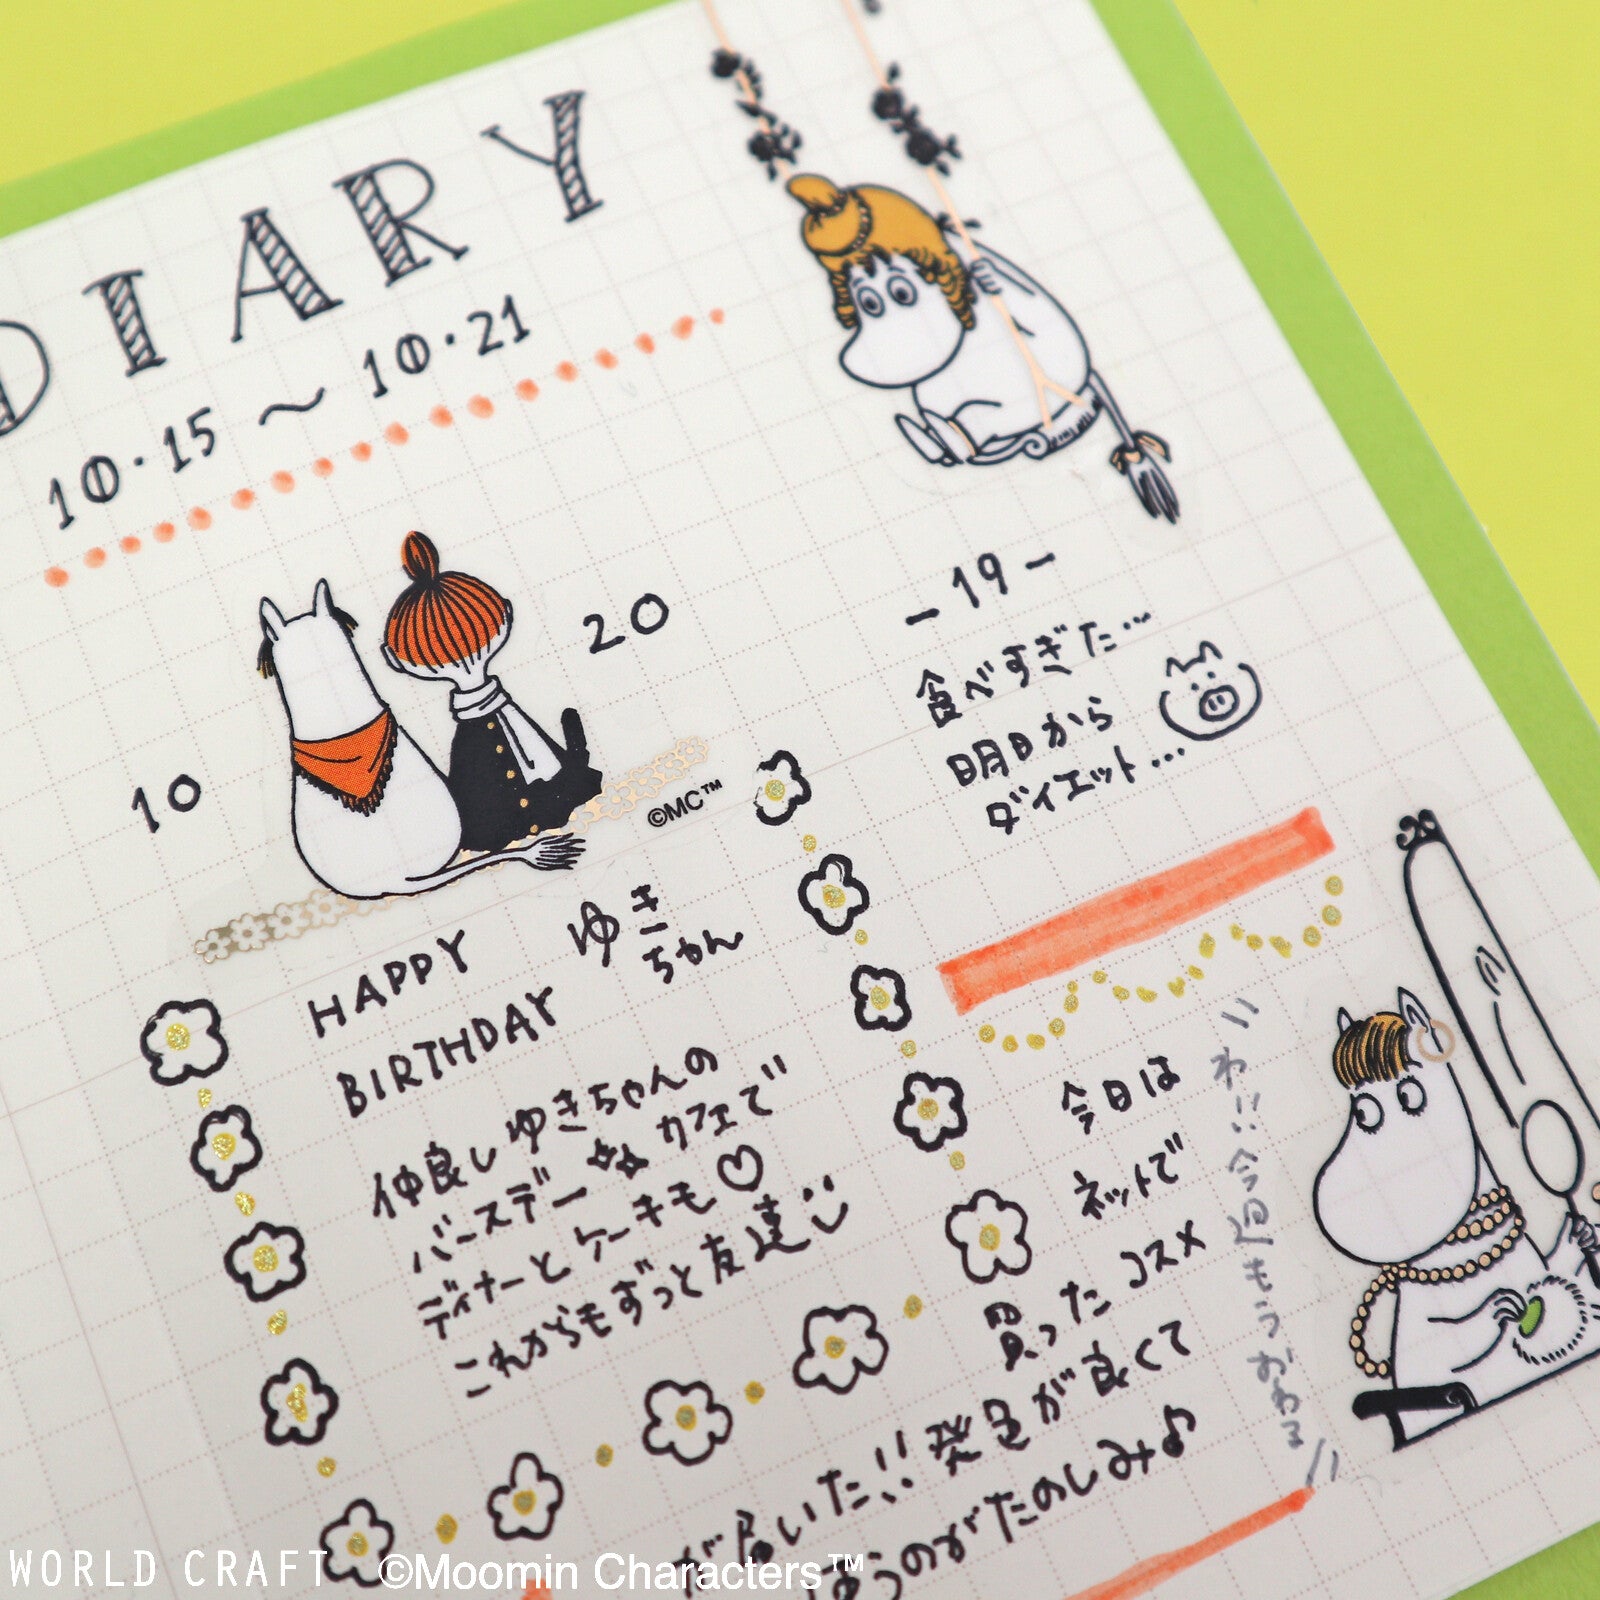 DIARY
10・15 〜 10・21
10
20
©MC™
HAPPY
BIRTHDAY
ゆき
ちゃん
仲良しゆきちゃんの
バースデー カフェで
ディナーとケーキも♡
これからもずっと友達
-19-
食べすぎた…
明日から
ダイエット…
今日は
ネットで
買ったコスメ
が届いた!!発色が良くて
うのがたのしみ♪
わ!!今週もうおわる
WORLD CRAFT ©Moomin Characters™